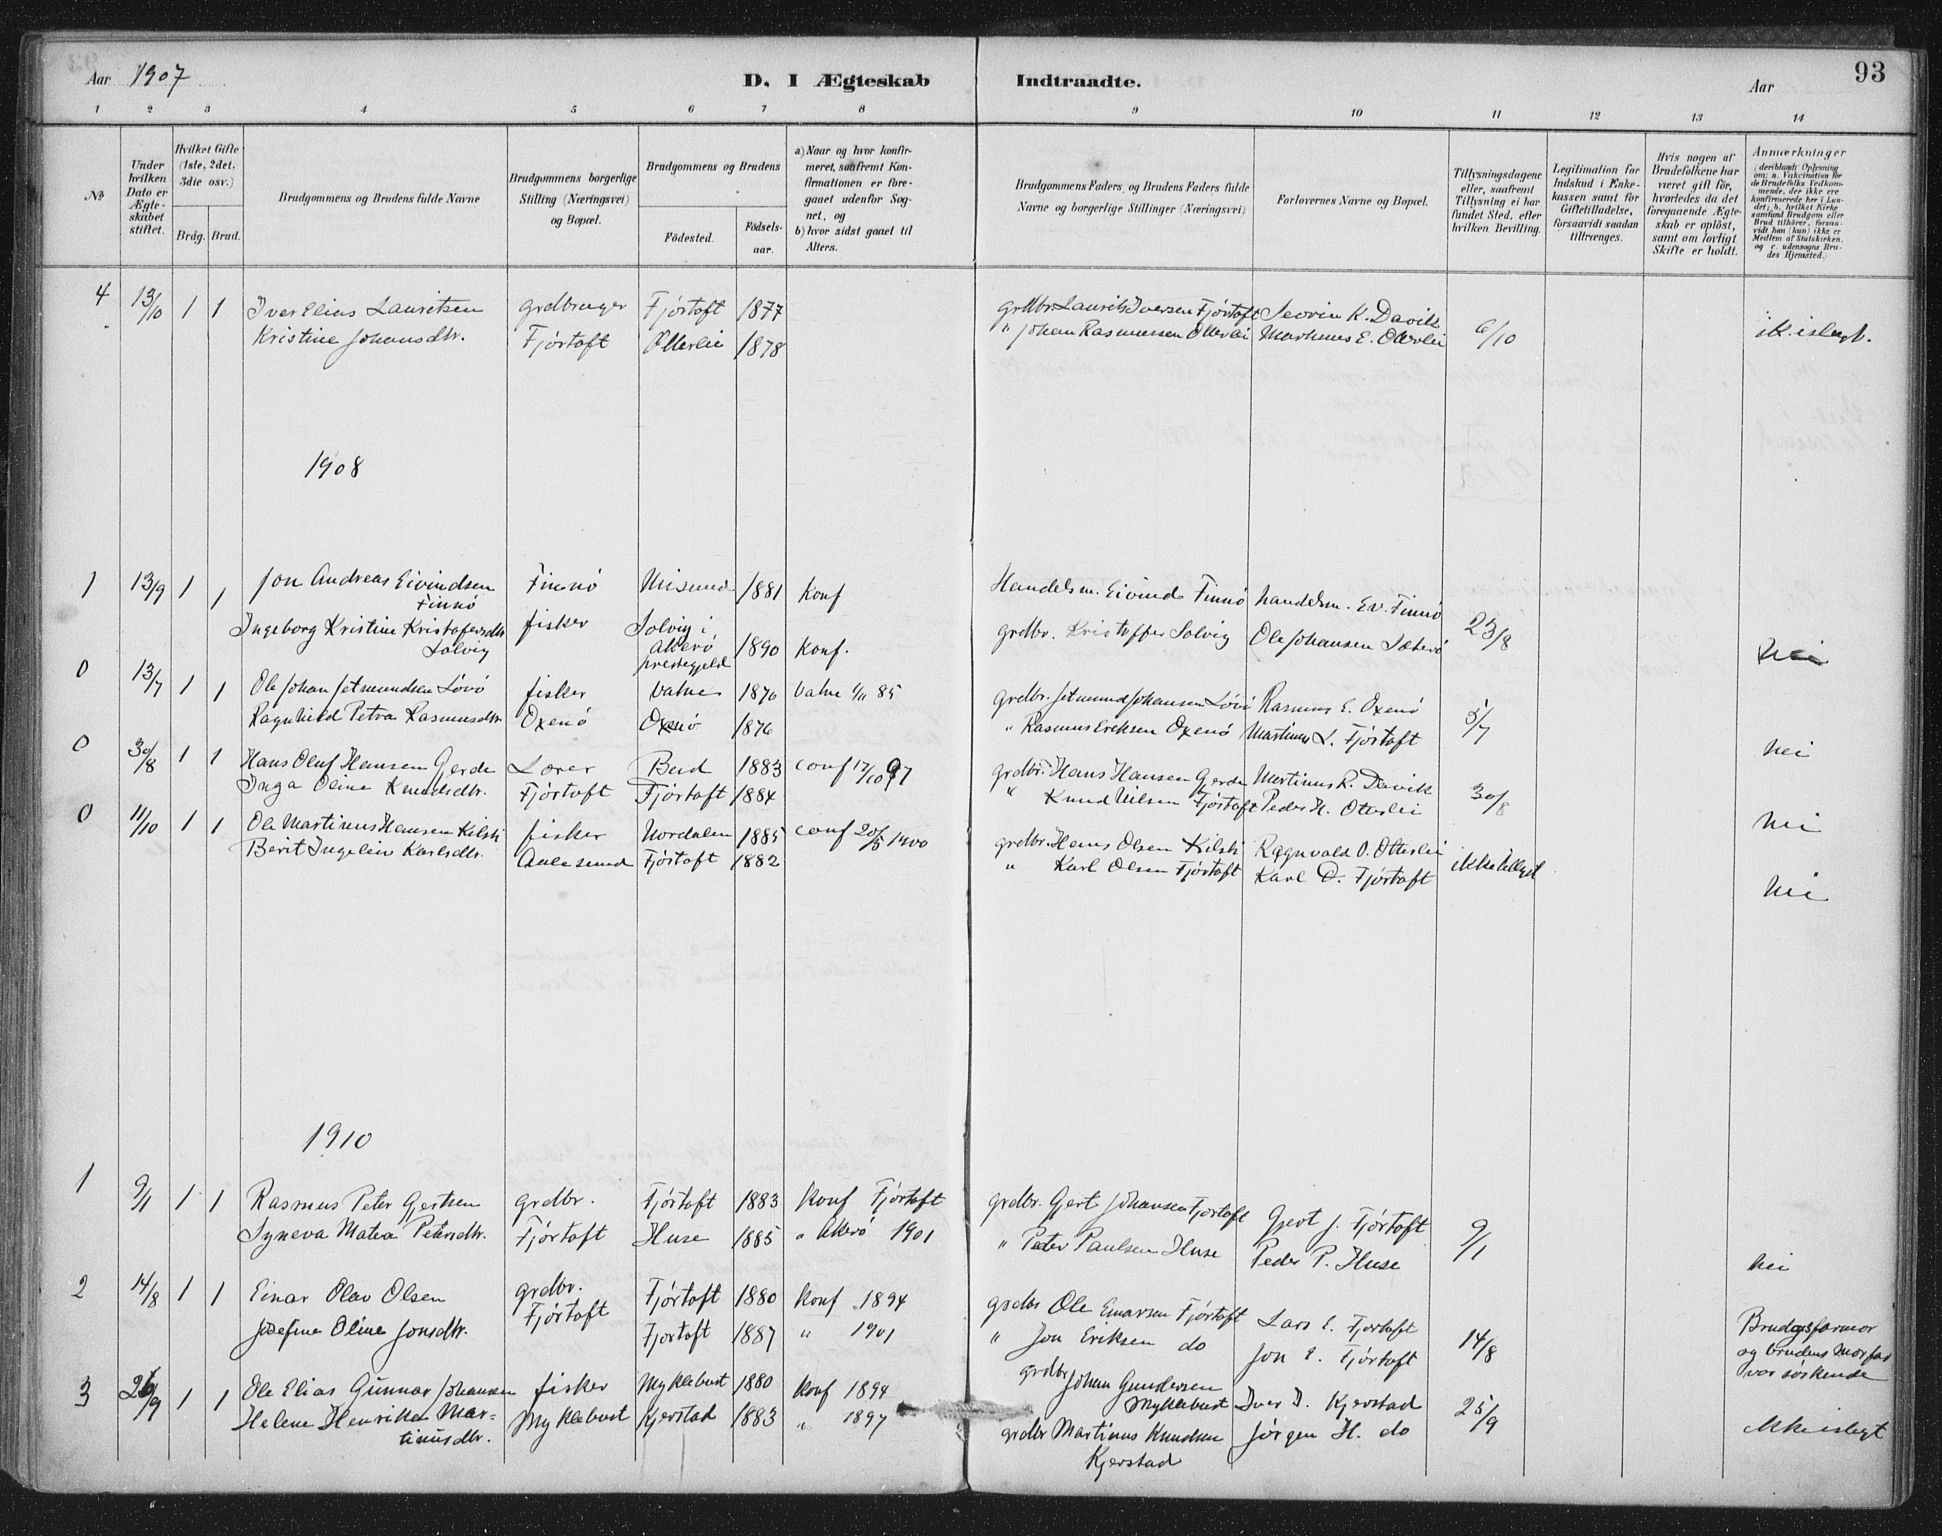 Aar 1907
D. I Ægteskab Indtraadte.
Aar 93
1 2 3 4 5 6 7 8 9 10 11 12 13 14
No.
Under hvilken Dato er Ægteskabet stiftet.
Hvilket Gifte (1ste, 2det, 3die osv.)
Brdg. Brud.
Brudgommens og Brudens fulde Navne
Brudgommens borgerlige Stilling (Næringsvei) og Bopæl.
Brudgommens og Brudens
Födested. Födselsaar.
a) Naar og hvor konfirmeret, saafremt Konfirmationen er foregaaet udenfor Sognet, og
b) hvor sidst gaaet til Alters.
Brudgommens Faders og Brudens Faders fulde Navne og borgerlige Stillinger (Næringsvei)
Forlovernes Navne og Bopæl.
Tillysningsdagene eller, saafremt Tillysning ei har fundet Sted, efter hvilken Bevilling.
Legitimation for Indskud i Enkekassen samt for Giftetilladelse, forsaavidt saadan tiltrænges.
Hvis nogen af Brudefolkene har været gift för, hvorledes da det foregaaende Ægteskab er oplöst, samt om lovligt Skifte er holdt.
Anmærkninger
(deriblandt Oplysning om: a. Vakcination for de Brudefolks Vedkommende, der ikke ere konfirmerede her i Landet; b. hvilket Kirkesamfund Brudgom eller Brud tilhörer, forsaavidt han (hun) ikke er Medlem af Statskirken, og c. udensogns Brudes Hjemsted.)
4 13/10 1 1 Iver Elias Lauritsen grdbruger Fjörtoft 1877 grdbr. Laurits Iversen Fjörtoft Severin K. Davik 6/10 ik. islegt.
Kristine Johansdtr. Fjörtoft Otterlei 1878 " Johan Rasmussen Otterlei Martinus E. Otterlei
1908
1 13/9 1 1 Jon Andreas Eivindsen Finnö 1881 Konf Handelsm. Eivind Finnö handelsm. Ev. Finnö 23/8
Finnö
Ingeborg Kristine Kristofersdtr fisker Solvig i 1890 Konf. grdbr. Kristoffer Solvig Ole Johansen nei
Solvig Akerö
prestegjeld
0 13/7 1 1 Ole Johan Jetmundsen Lövö fisker Vatne 1870 Vatne 85 grdbr. Jetmund Johansen Lövö Rasmus E. Oxenö 5/7
Ragnhild Petra Rasmusdtr. Oxenö Oxenö 1876 " Rasmus Eriksen Oxenö Martinus L. Fjörtoft nei
0 30/8 1 1 Hans Oluf Hansen Gjerde Lærer Bud 1883 conf 17/10 97 grdbr. Hans Hansen Gjerde Martinus R. Davik 30/8
Inga Oline Knudsdtr. Fjörtoft Fjörtoft 1884 " Knud Nilsen Fjörtoft Peder H. Otterlei nei
0 11/10 1 1 Ole Martinus Hansen Kilsti fisker Nordalen 1885 conf 20/5 1900 grdbr. Hans Olsen Kilsti Ragnvald O. Otterlei ikke tillyst
Berit Ingelein Karlsdtr. Aalesund Fjörtoft 1882 " Karl Olsen Fjörtoft Karl O. Fjörtoft nei
1910
1 9/1 1 1 Rasmus Peter Gjertsen grdbr. Fjörtoft 1883 Konf Fjörtoft grdbr. Gjert Johansen Fjörtoft Gjert J. Fjörtoft 9/1
Syneva Matea Petersdtr. Fjörtoft Huse 1885 " Akerö 1901 " Peter Paulsen Huse Peder P. Huse nei
2 14/8 1 1 Einar Olav Olsen grdbr. Fjörtoft 1880 Konf 1894 grdbr Ole Einarsen Fjörtoft Lars E. Fjörtoft 14/8 Brudgs farmor
Josefine Oline Jonsdtr. Fjörtoft Fjörtoft 1887 " 1901 " Jon Eriksen do Jon E. Fjörtoft og brudens morfar
var söskende
3 26/9 1 1 Ole Elias Gunnar Johansen fisker Myklebust 1880 Konf 1894 grdbr Johan Gundersen
Myklebust Iver I. Kjerstad 25/9
Helene Henrikke Mar- Myklebust Kjerstad 1883 " 1897 grdbr Martinus Knudsen Jörgen H. do ikke islegt
tinusdtr. Kjerstad